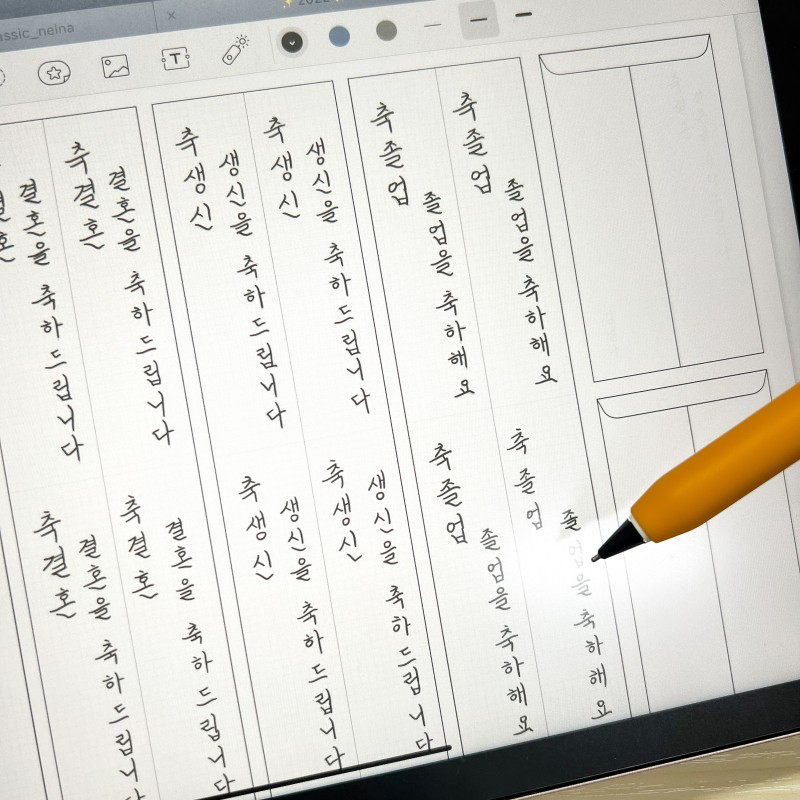 assic_nelna
2022
T
결혼
결혼을
축하드립니다
축결혼
결혼을
축하드립니다
축생신
생신을
축하드립니다
축생신
생신을
축하드립니다
축졸업
졸업을
축하해요
축졸업
졸업을
축하해요
축결혼
결혼을
축하드립니다
축결혼
결혼을
축하드립니다
축생신
생신을
축하드립니다
축생신
생신을
축하드립니다
축졸업
졸업을
축하해요
축졸업
졸업을
축하해요